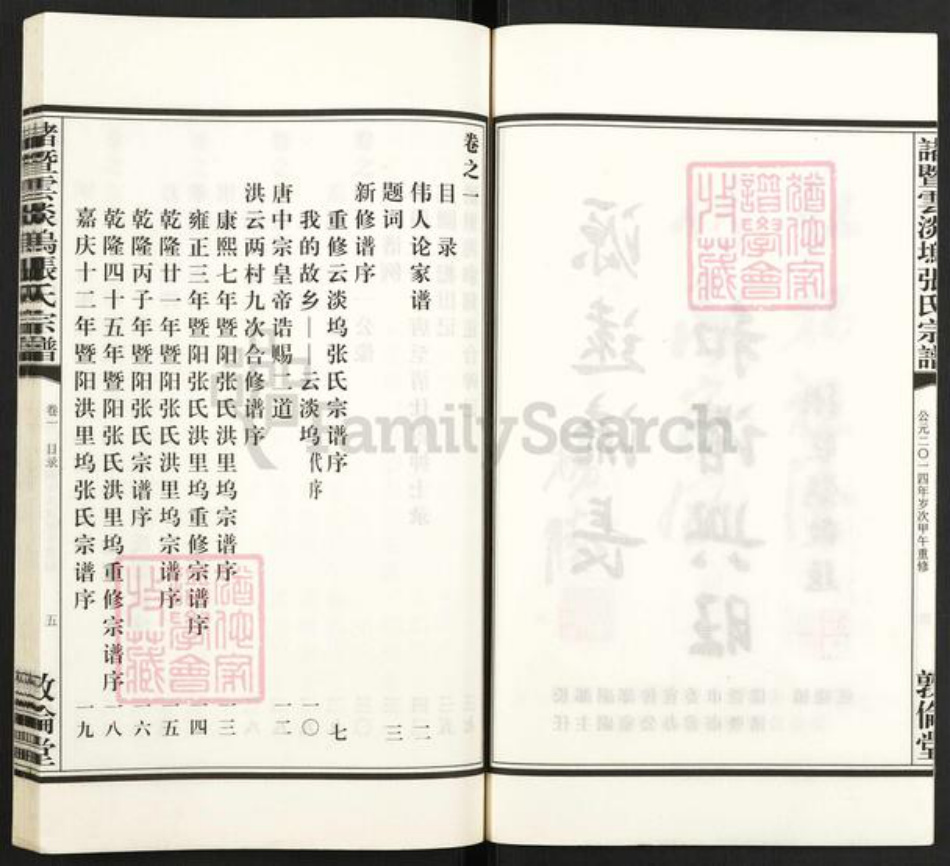 諸暨雲淡塢張氏宗譜
公元二〇一四年岁次甲午重修
敦倫堂
猶他家譜學會收藏
卷之一
目录
伟人论家谱 二
题词 三
新修谱序
重修云淡坞张氏宗谱序 七
我的故乡——云淡坞代序 一〇
唐中宗皇帝诰赐一道 一二
洪云两村九次合修谱序
康熙七年暨阳张氏洪里坞宗谱序 一三
雍正三年暨阳张氏洪里坞重修宗谱序 一四
乾隆廿一年暨阳张氏洪里坞宗谱序 一五
乾隆丙子年暨阳张氏宗谱序 一六
乾隆四十五年暨阳张氏洪里坞重修宗谱序 一八
嘉庆十二年暨阳洪里坞张氏宗谱序 一九
猶他家譜學會收藏
諸暨雲淡塢張氏宗譜
卷一 目录
五
敦倫堂
FamilySearch